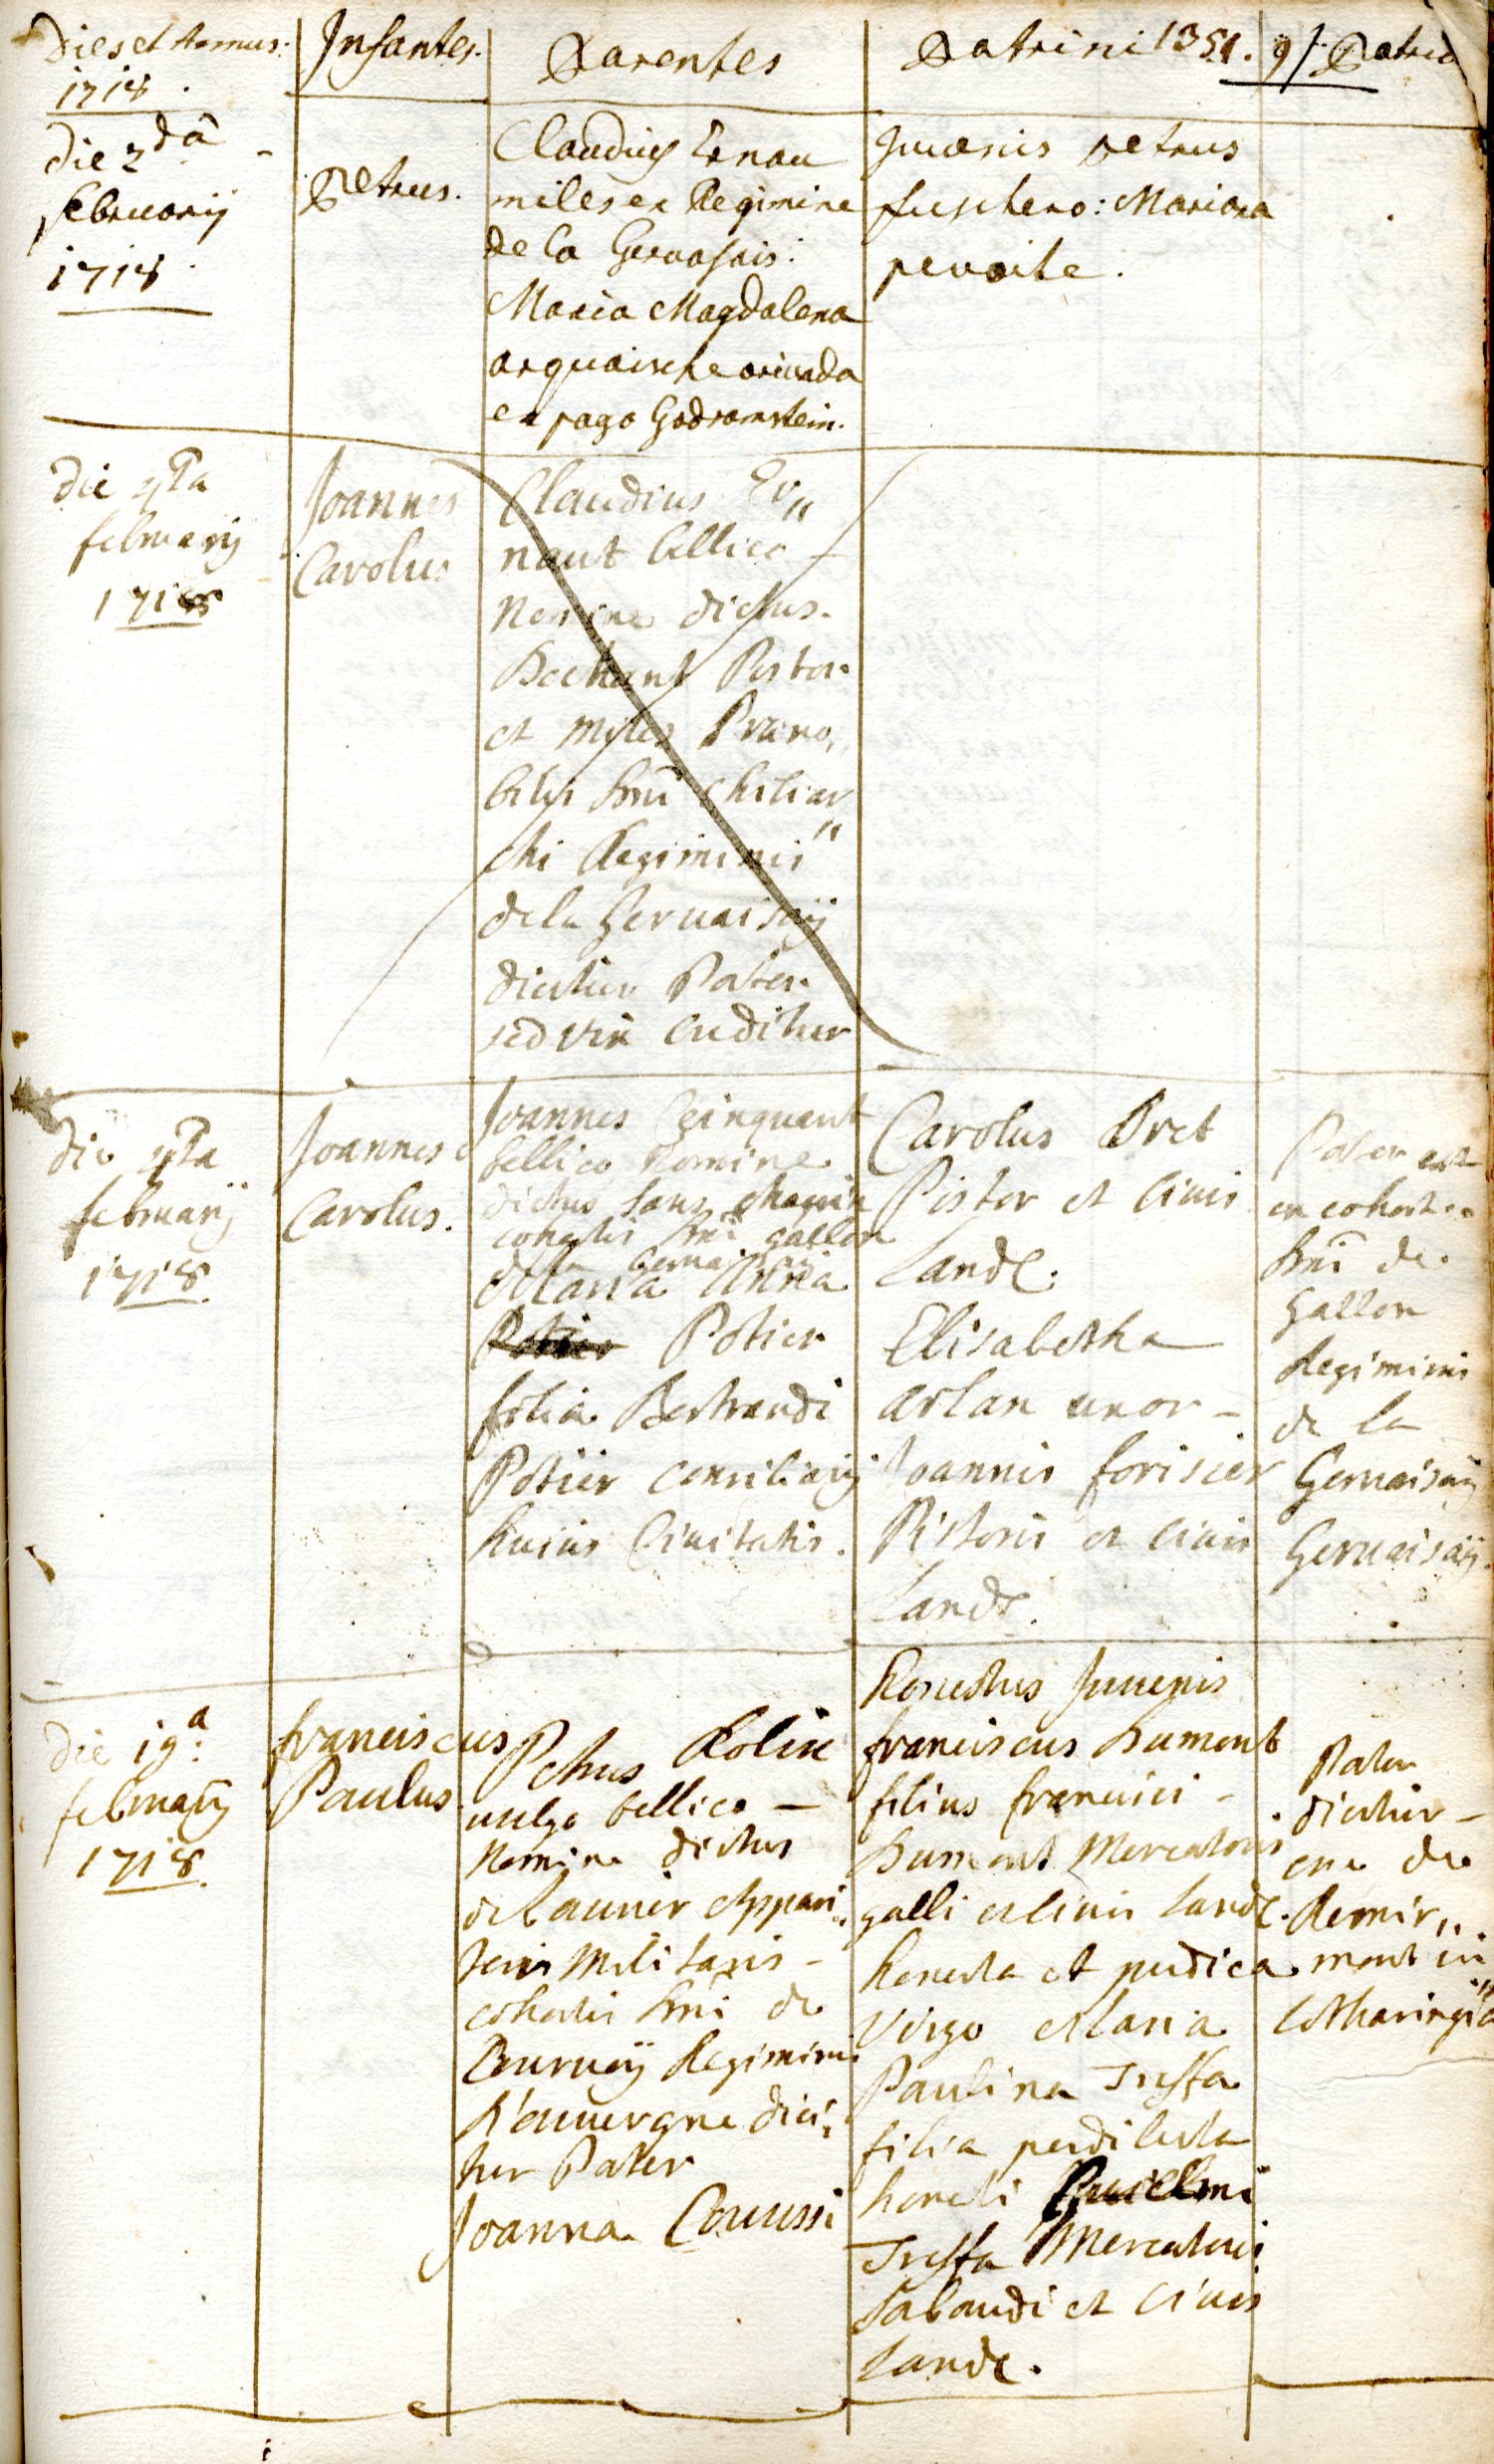 Dies et Annus:
1718.
Infantes.
Parentes
Patrini 1351.
9/. Patria
die 2dâ
februarij
1718
Petrus.
Claudius Ernau
miles ex Regimine
de la Gervasais:
Maria Magdalena
oriunda
ex pago Godramstein.
Juvenis petrus
fuschero: Mariana
pevoite.
die 4ta
februarij
1718
Joannes
Carolus
Claudius Er„
naut bellico –
Nomine dictus.
Pistor
et Miles Præno„
bilis Dni Chiliar„
chi Regiminis
de la Gervaisaij
dicitur Pater
sed vix creditur
die 4ta
februarij
1718.
Joannes
Carolus.
Joannes Cinquant
bellico Nomine
dictus Sans chagrin
cohortis Dni gallon
de la Gervaisaij
Maria Anna
Potier
filia Bertrandi
Potier Consiliarij
huius Civitatis.
Carolus Bret
Pistor et Civis
Land.
Elisabetha
arlan uxor –
Joannis forisier
Pistoris et Civis
Land.
Pater est
ex cohorte
Dni de
Gallon
Regiminis
de la
Gervaisaij
Gervaisaij.
die 19.a
februarij
1718.
franciscus
Paulus
Petrus Rolin
vulgo bellico –
Nomine dictus
de launir Appari„
toris Militaris –
cohortis Dni de
Cournoy Regiminis
d'auvergne dici„
tur Pater
Joanna Coussi
Honestus Juvenis
franciscus Dumont
filius francisci –
Dumont Mercatoris
galli et civis Land.
honesta et pudica
Virgo Maria
Paulina Treffa
filia perdilecta
honesti
Treffa Mercatoris
Sabaudi et Civis
Land.
Pater
dicitur –
esse de
Remir„
mont in
Lotharingia